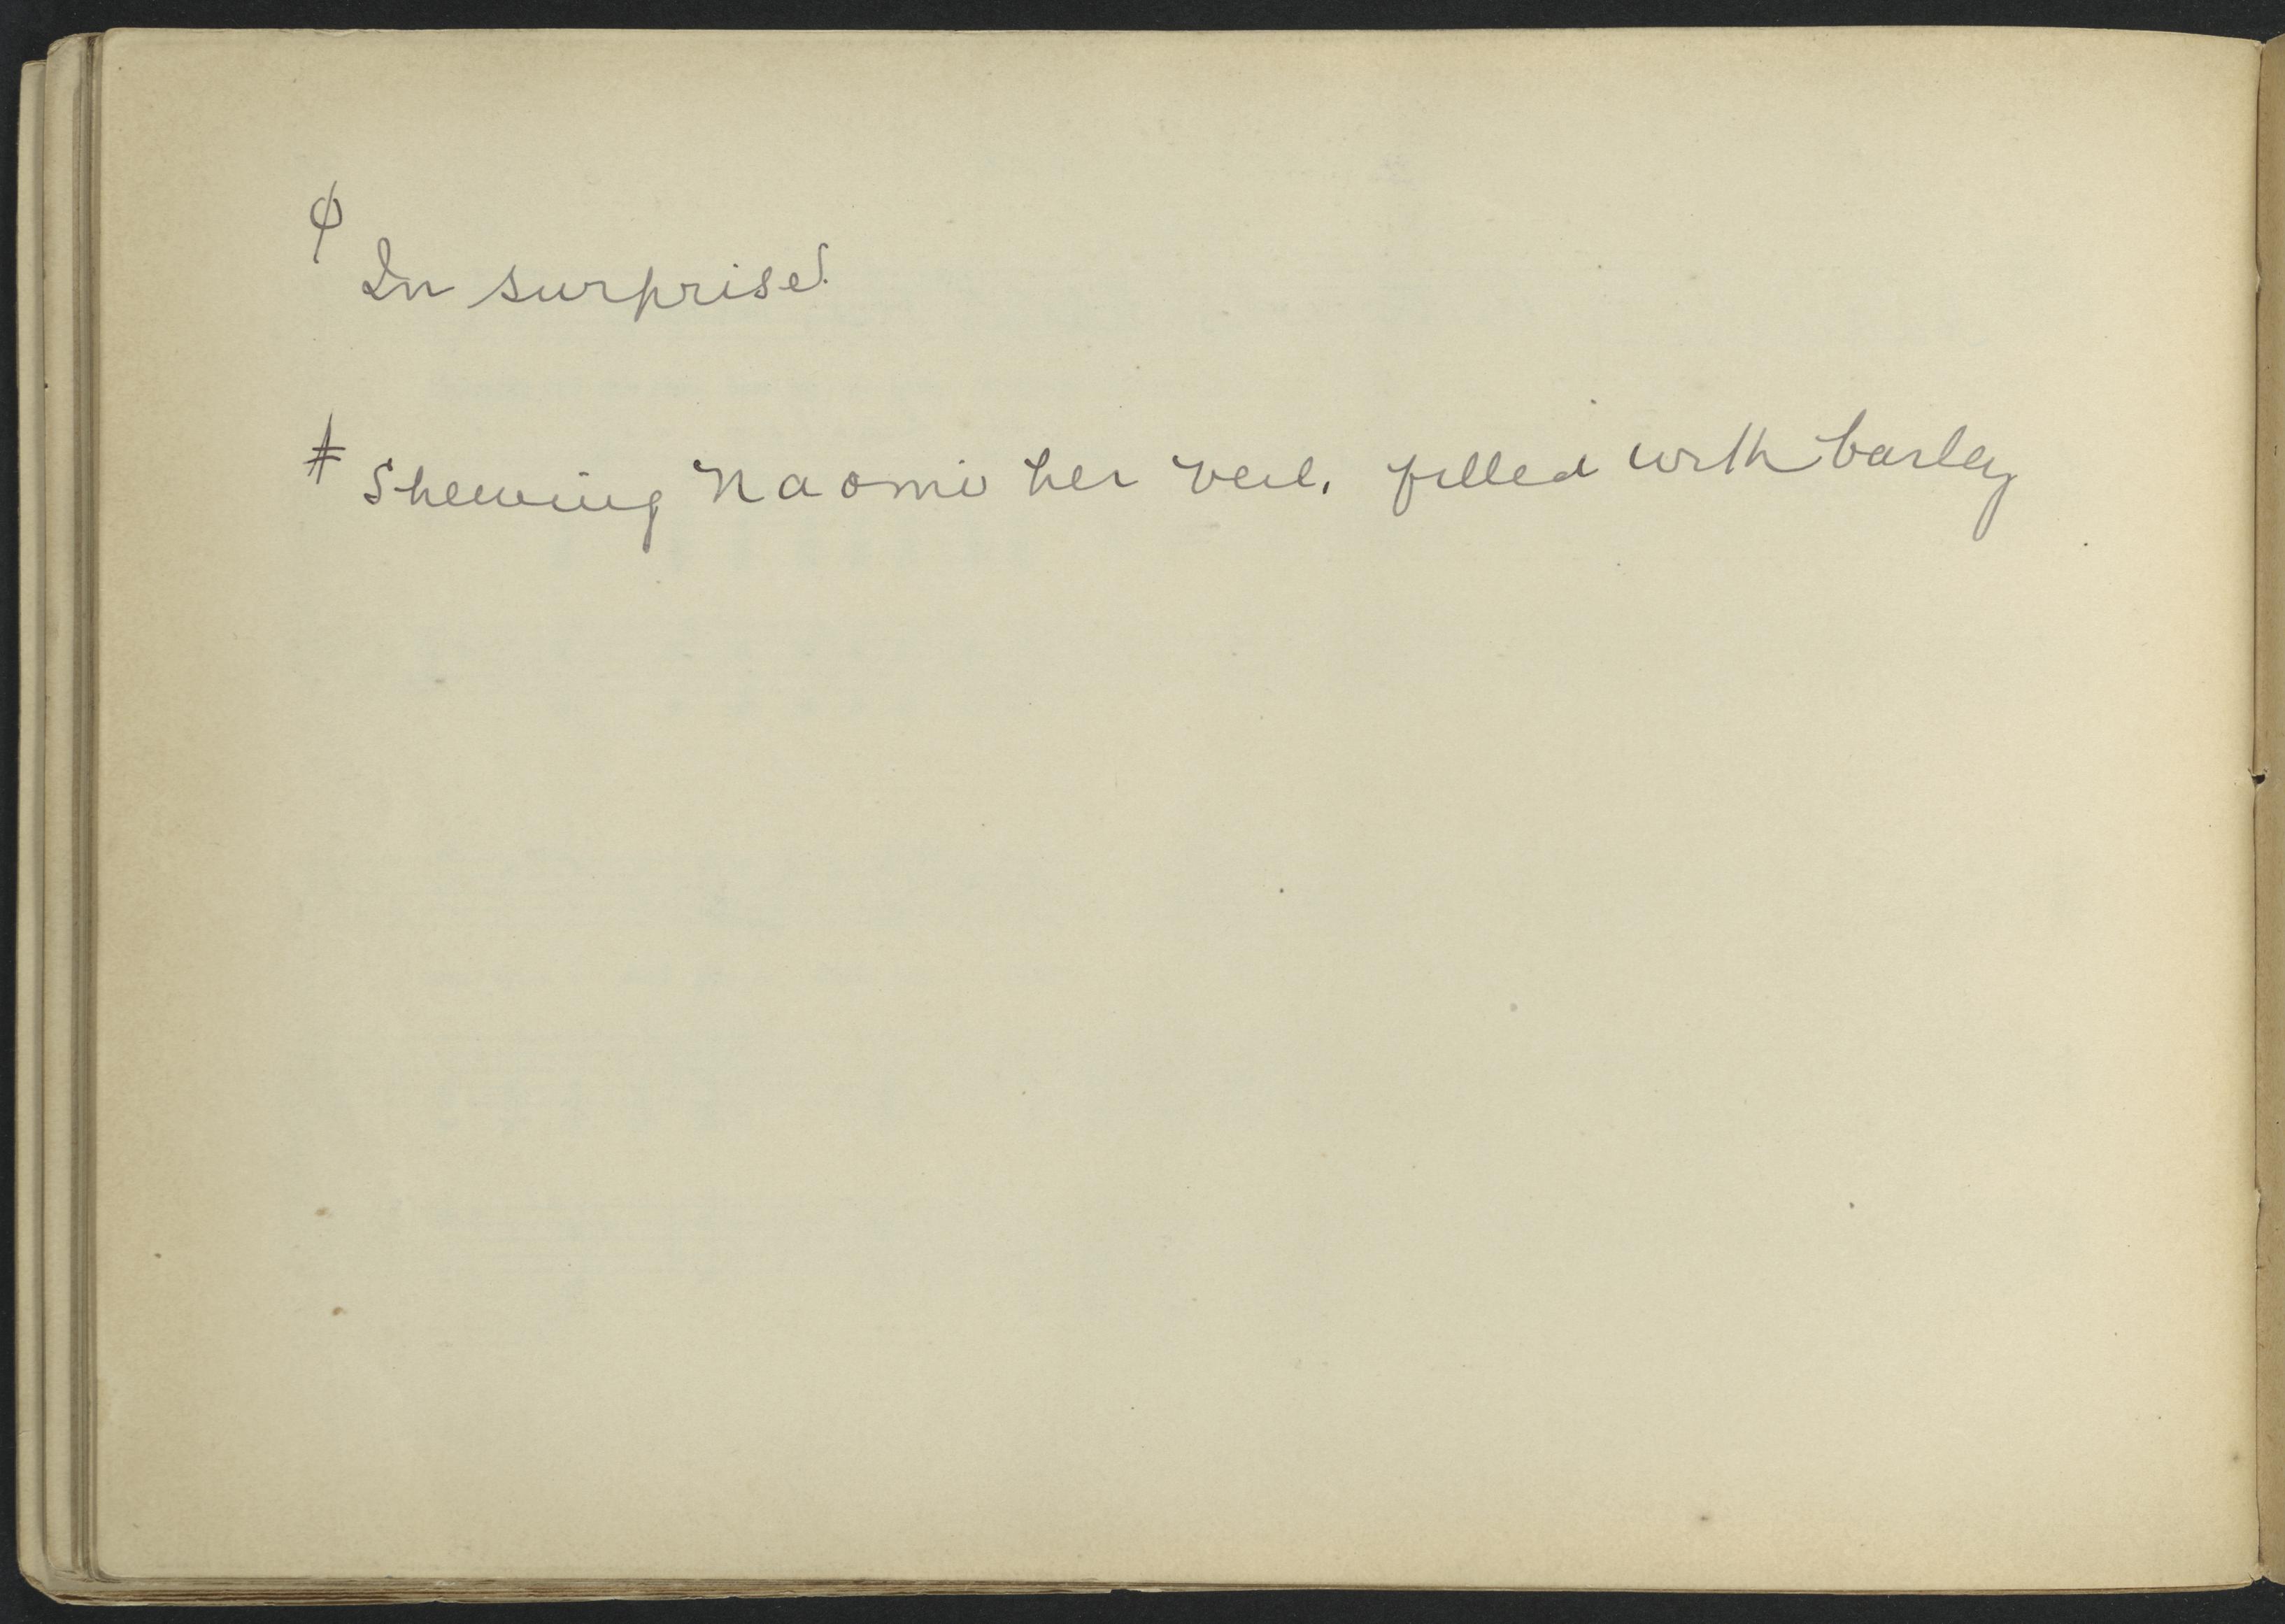 φ
In surprise.
ǂ Shewing Naomi her veil, filled with barley